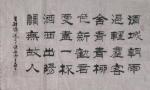 渭城朝雨
浥輕塵客
舍青青柳
色新勸君
更盡一杯
酒西出陽
關無故人